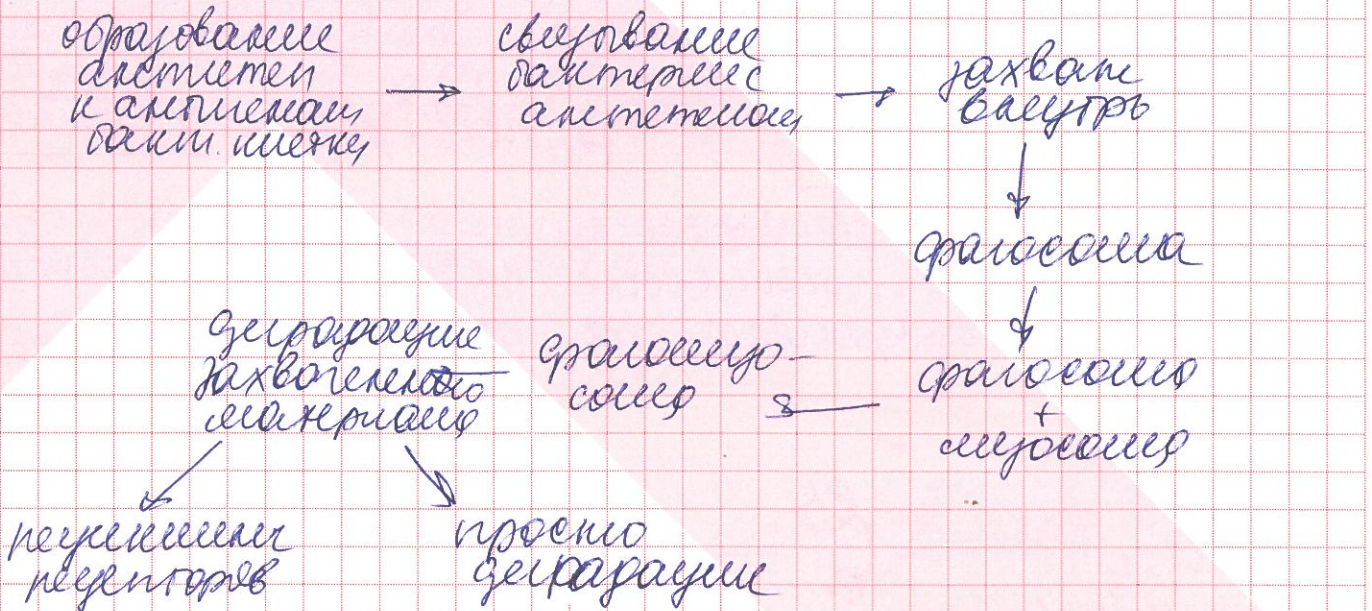 образование
антител
к антигенам
бакт. клетки
связывание
бактерии с
антителами
захват
внутрь
фагосома
фагосома
+
лизосома
фаголизо-
сома
деградация
захваченного
материала
рециклинг
рецепторов
просто
деградация